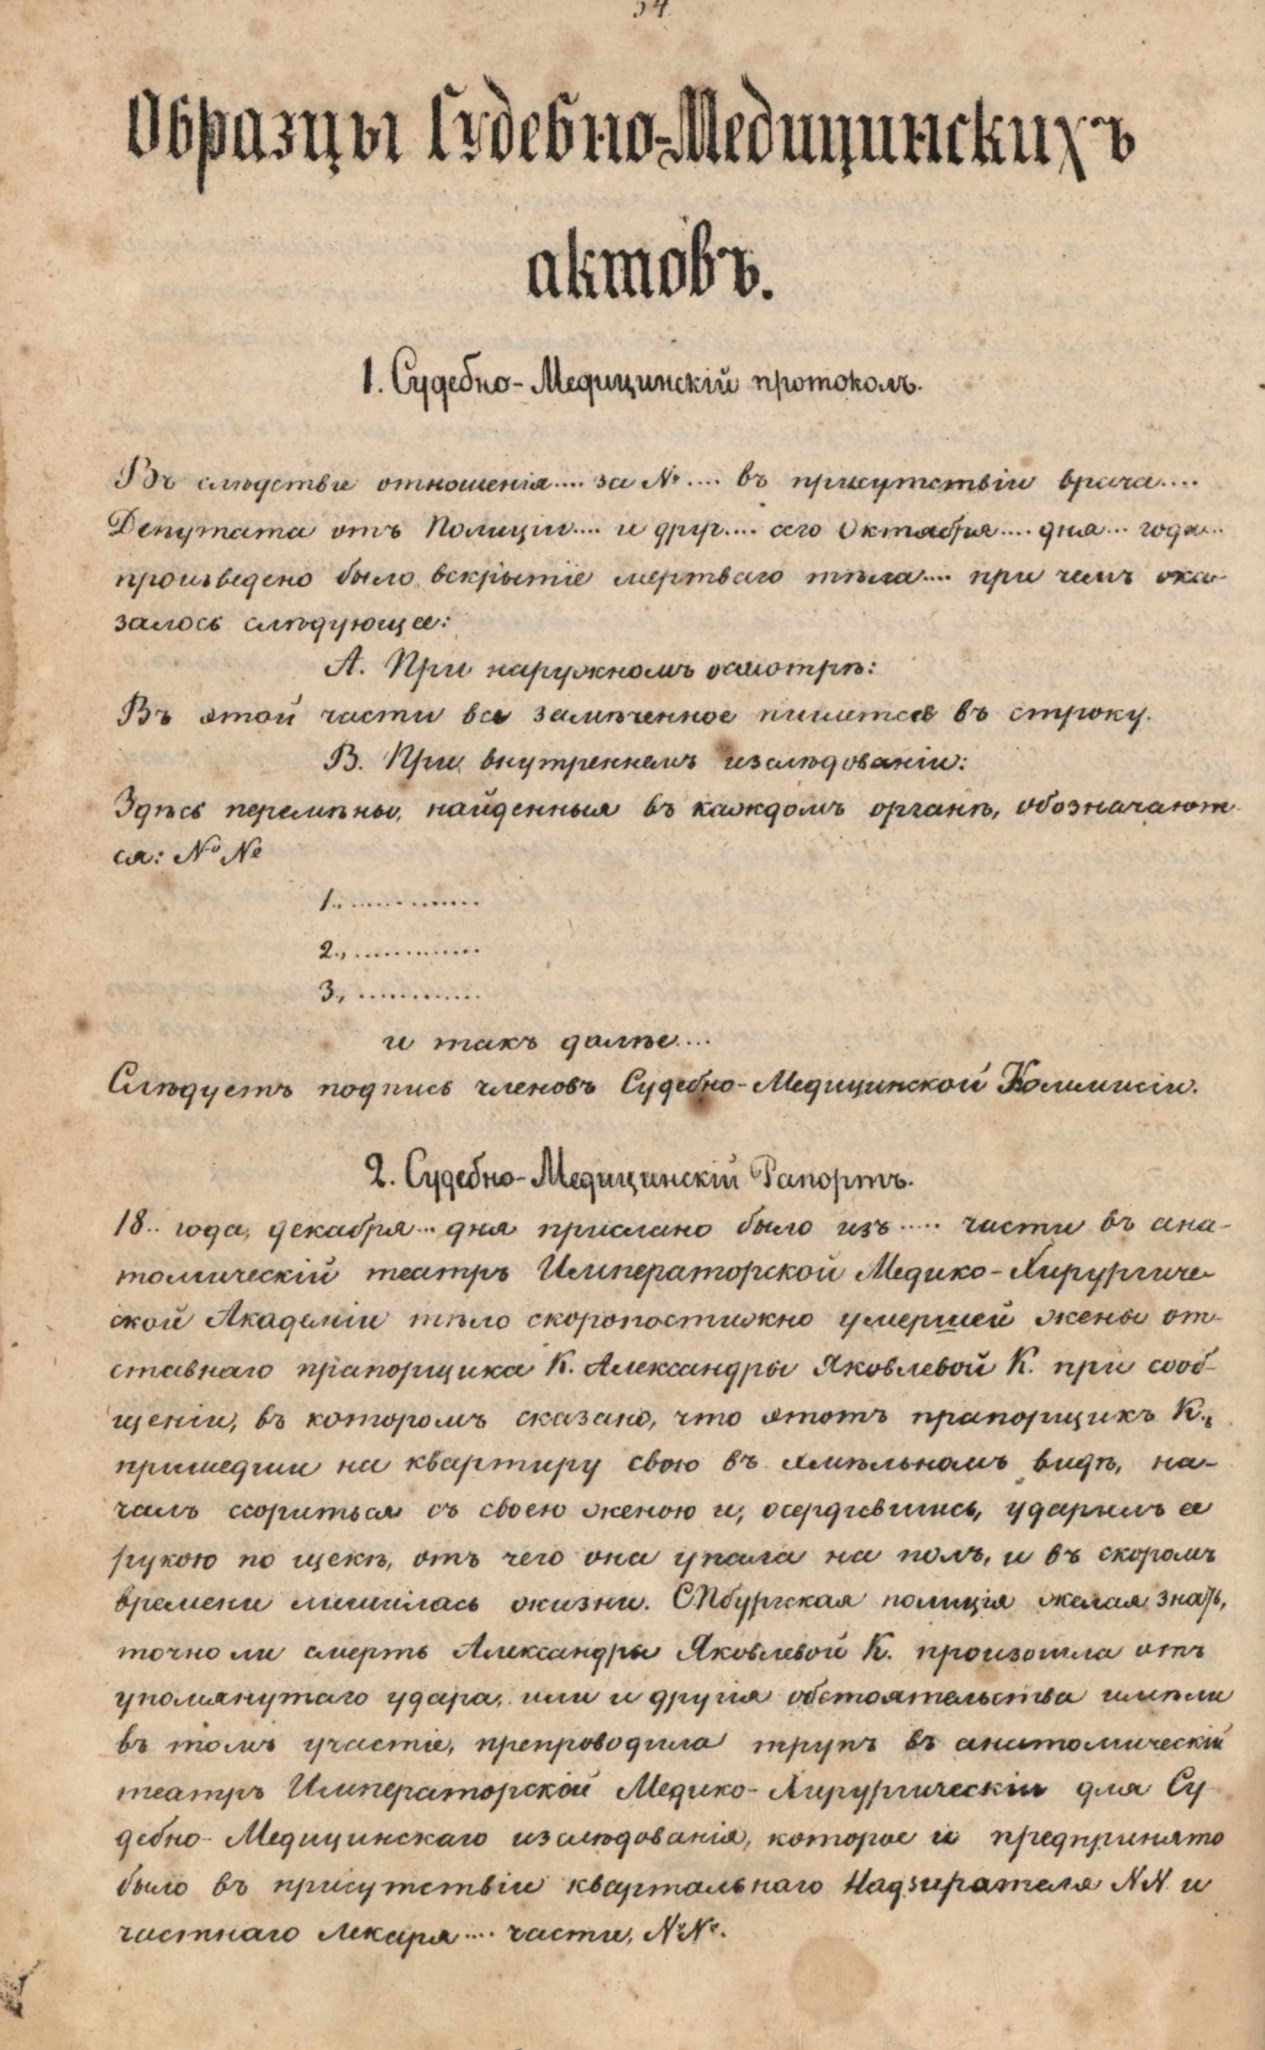 34
Образцы Судебно-Медицинскихъ
актовъ.
1. Судебно-Медицинскій протоколъ.
Въ слѣдствіе отношенія.... за № .... въ присутствіи врача....
Депутата отъ Полиціи.... и друг.... сего Октября.... дня... года...
произведено было вскрытіе мертваго тѣла.... при чемъ ока-
залось слѣдующее:
А. При наружномъ осмотрѣ:
Въ этой части все замѣченное пишется въ строку.
В. При внутреннемъ изслѣдованіи:
Здѣсь перемѣны, найденныя въ каждомъ органѣ, обозначают-
ся: № №
1., .............
2., .............
3., .............
и такъ далѣе....
Слѣдуетъ подпись членовъ Судебно-Медицинской Коммисіи.
2. Судебно-Медицинскій Рапортъ.
18.. года, декабря... дня прислано было изъ ..... части въ ана-
томическій театръ Императорской Медико-Хирургиче-
ской Академіи тѣло скоропостижно умершей жены от-
ставнаго прапорщика К. Александры Яковлевой К. при сооб-
щеніи, въ которомъ сказано, что этотъ прапорщикъ К.,
пришедши на квартиру свою въ хмѣльномъ видѣ, на-
чалъ ссориться съ своею женою и, осердившись, ударилъ ее
рукою по щекѣ, отъ чего она упала на полъ, и въ скоромъ
времени лишилась жизни. СПбургская полиція желая знать,
точно ли смерть Александры Яковлевой К. произошла отъ
упомянутаго удара, или и другія обстоятельства имѣли
въ томъ участіе, препроводила трупъ въ анатомическій
театръ Императорской Медико-Хирургическій для Су-
дебно-Медицинскаго изслѣдованія, которое и предпринято
было въ присутствіи квартальнаго Надзирателя N.N. и
частнаго лекаря .... части, №№.